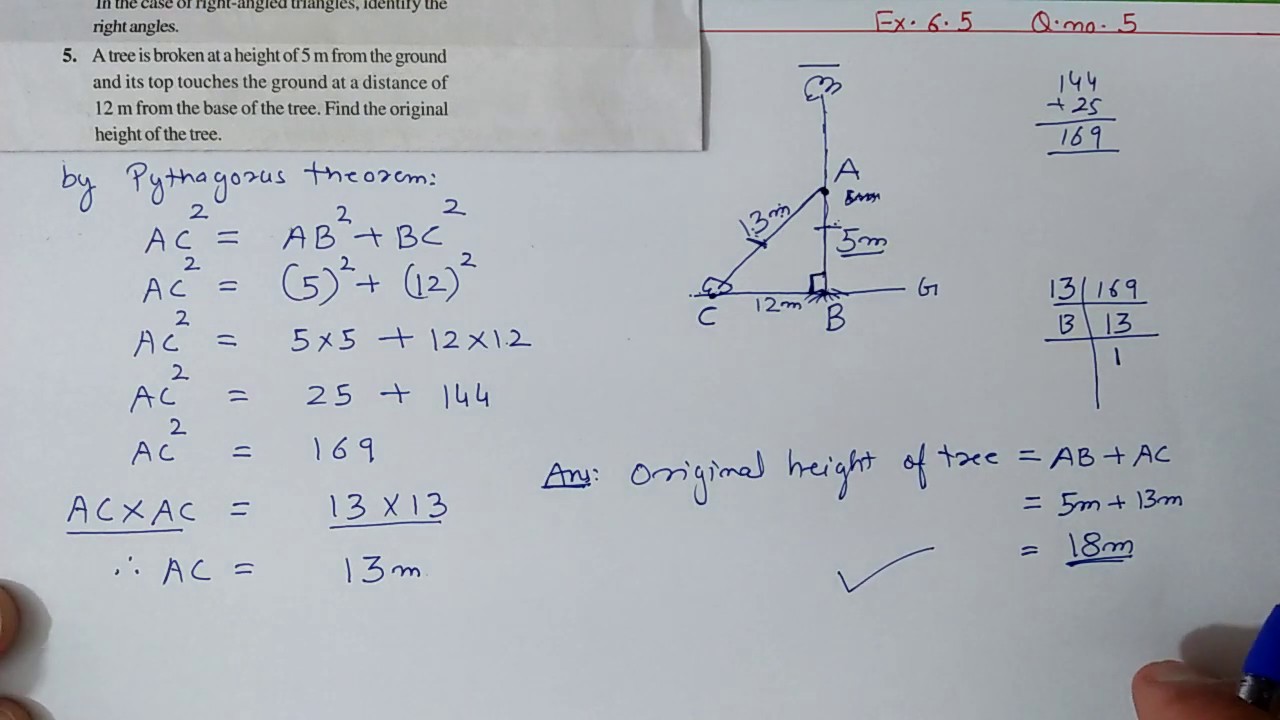 In the case of right-angled triangles, identify the
right angles.
5. A tree is broken at a height of 5 m from the ground
and its top touches the ground at a distance of
12 m from the base of the tree. Find the original
height of the tree.
Ex. 6.5 Q.no. 5
by Pythagorus theorem:
AC² = AB² + BC²
AC² = (5)² + (12)²
AC² = 5×5 + 12×12
AC² = 25 + 144
AC² = 169
AC×AC = 13×13
∴ AC = 13m
A
13m
5m
12m
G
C
B
144
+ 25
169
13 169
13 13
1
Ans: Original height of tree = AB + AC
= 5m + 13m
= 18m